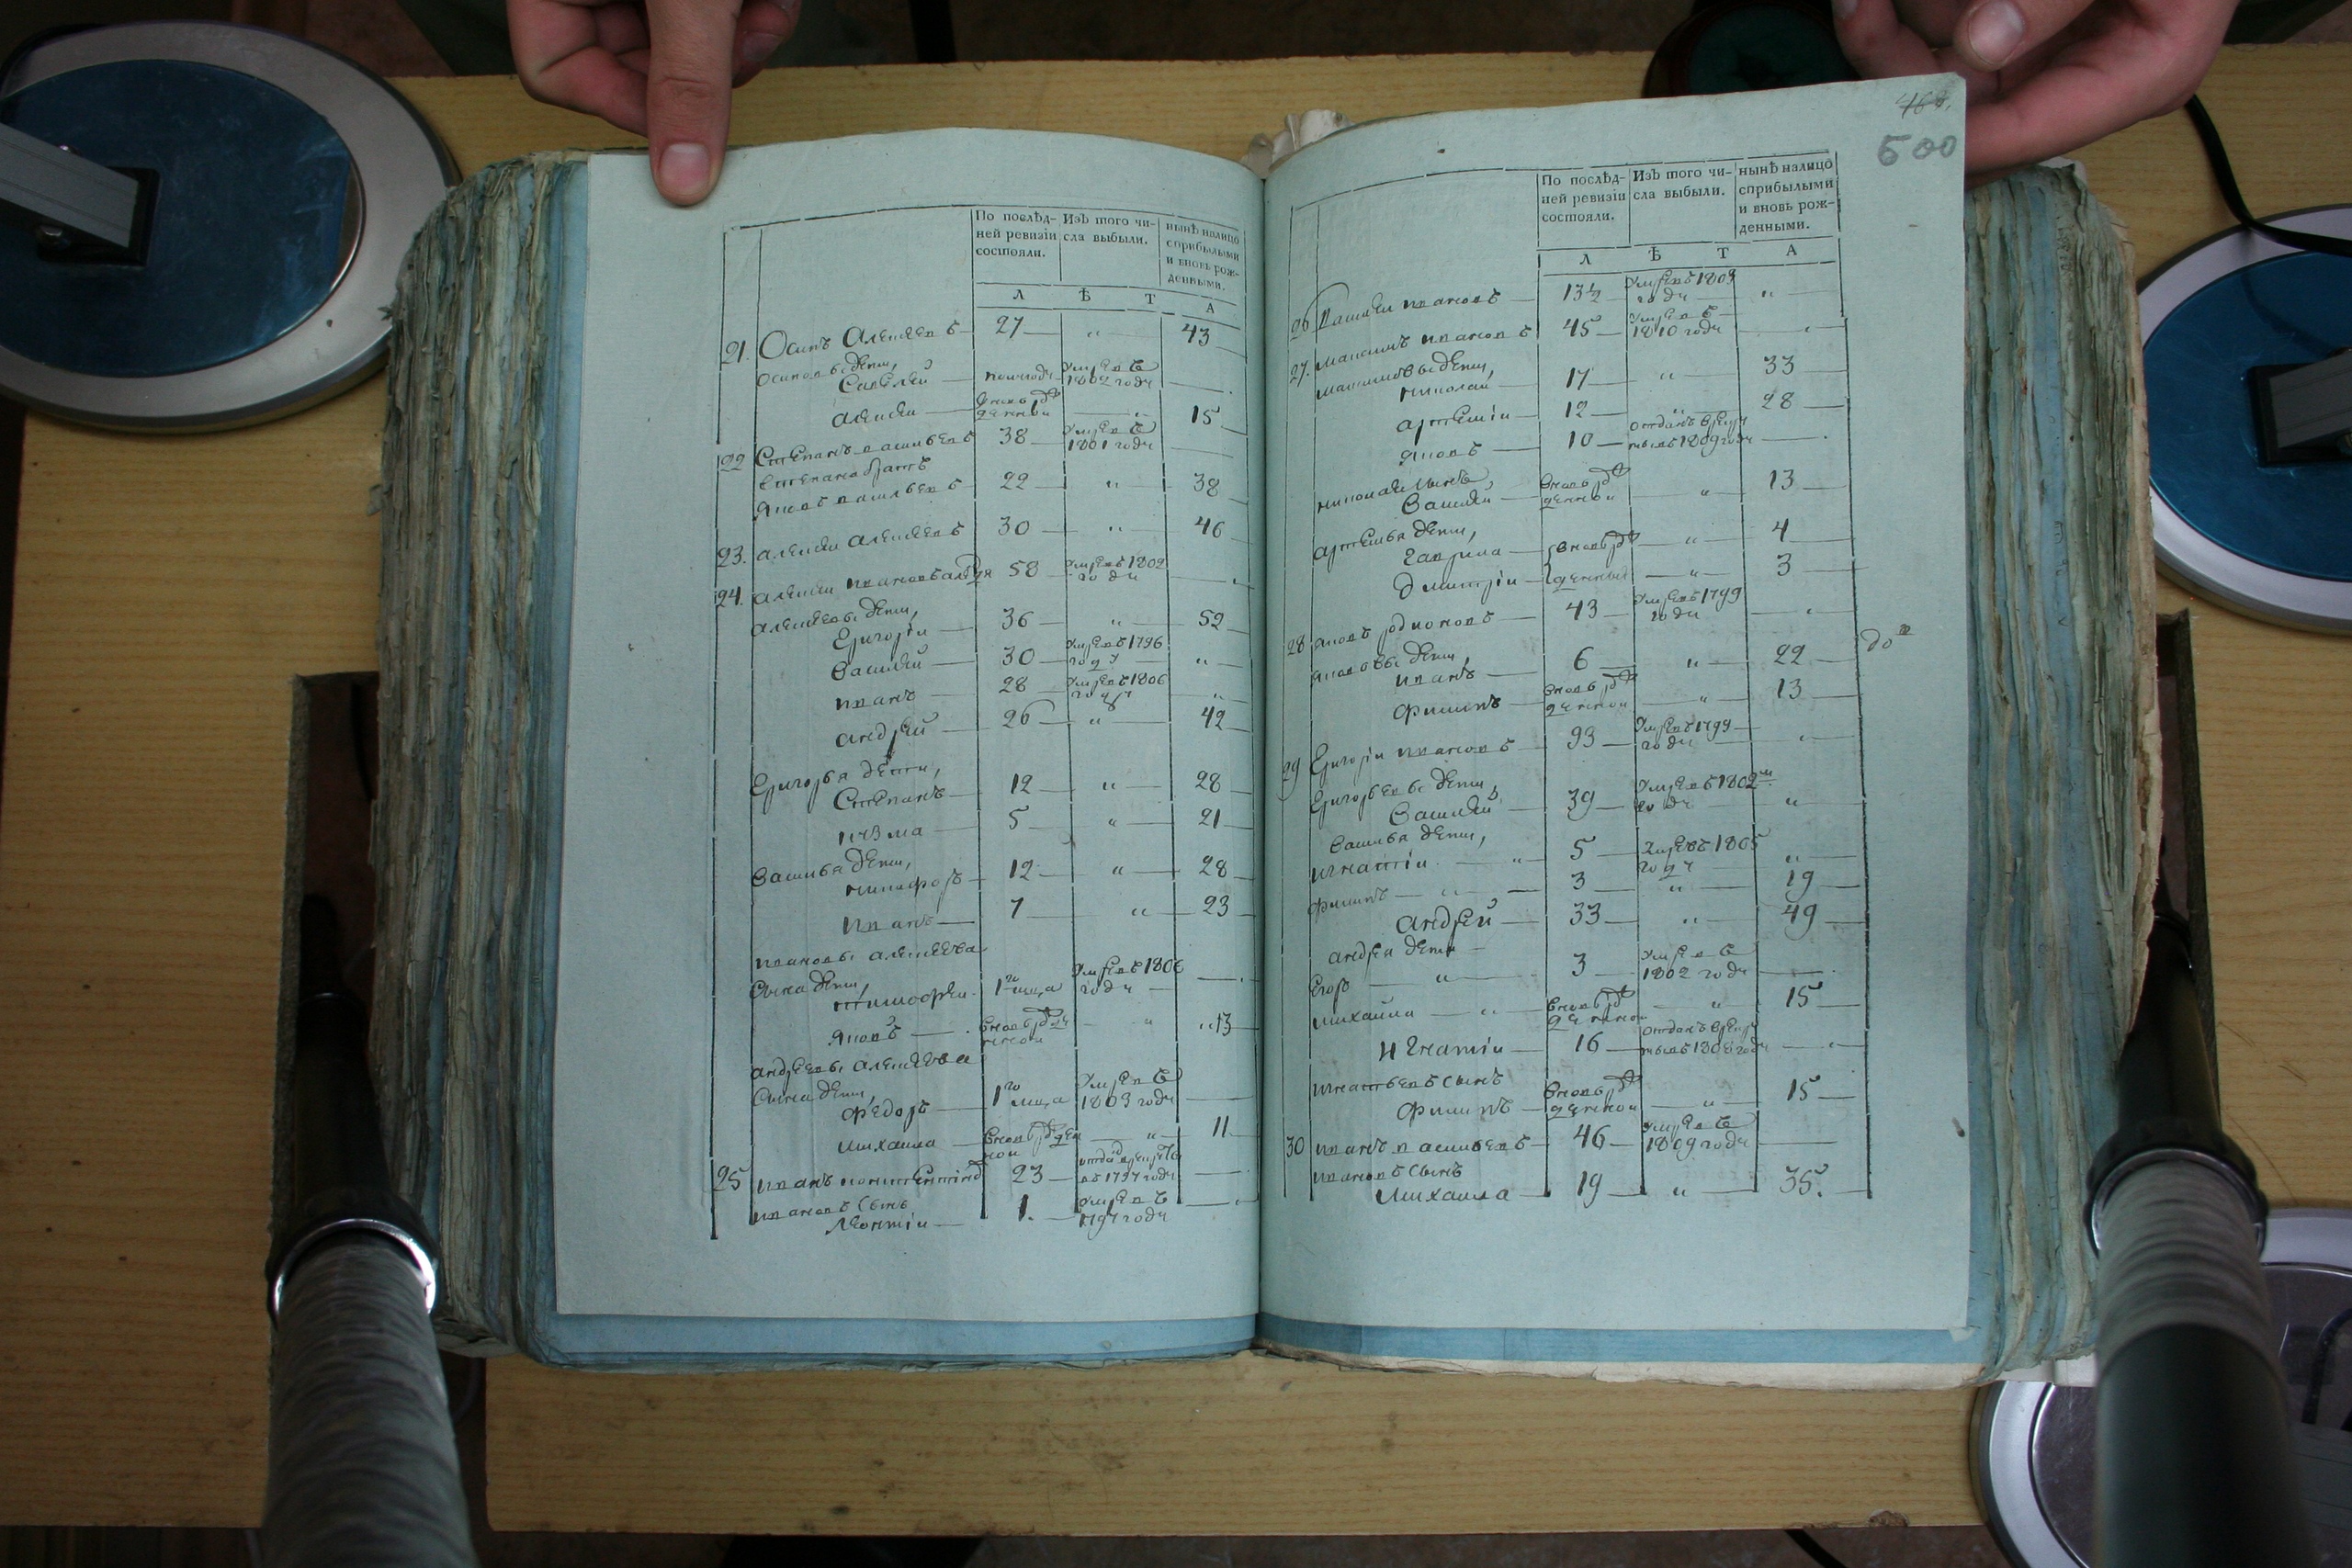 По послѣд-
ней ревизіи
состояли.
Изъ того чи-
сла выбыли.
нынѣ налицо
сприбылыми
и вновь рож-
денными.
Л Ѣ Т А
21. Осипъ Алексеевъ 27 " 43
Осиповы дети,
Савелей полугоду умревъ 1802 году
алексеи вновь рожденной " 15
22 Степанъ васильевъ 38 умревъ 1801 году
степана братъ
яковъ васильевъ 22 " 38
23. алексеи алексеевъ 30 " 46
24. алексеи ивановъ 58 умревъ 1802 году
алексеевы дети,
Григореи 36 " 52
Василей 30 умревъ 1796 году "
иванъ 28 умревъ 1806 году "
андрей 26 " 42
Григорья дети,
Степанъ 12 " 28
кузма 5 " 21
Василья дети,
никифоръ 12 " 28
иванъ 7 " 23
ивановы алексеева
сына дети,
тимофеи 1го меца умревъ 1806 году
яковъ вновь рожденнои " 13
андреевы алексеева
сына дети,
федоръ 1го меца умревъ 1803 году
михаила вновь рожденнои " 11
25 иванъ 23 отданъ врекруты въ 1797 году
ивановъ сынъ
леонтіи 1. умревъ 1797 году
500
По послѣд-
ней ревизіи
состояли.
Изъ того чи-
сла выбыли.
нынѣ налицо
сприбылыми
и вновь рож-
денными.
Л Ѣ Т А
26 Василеи ивановъ 13½ умревъ 1809 году "
27. максимъ ивановъ 45 умревъ 1810 году "
максимовы дети,
николаи 17 " 33
артемiи 12 " 28
яковъ 10 отданъ врекруты въ 1809 году
николая сынъ,
Василеи вновь рожденнои " 13
артемья дети,
гаврила вновь рож " 4
дмитрiи денныя " 3
28 яковъ родионовъ 43 умревъ 1799 году "
яковывы дети,
иванъ 6 " 22
филипъ вновь рожденнои " 13
29 Григореи ивановъ 93 умревъ 1799 году "
Григорьевы дети,
Василей 39 умревъ 1802м году "
Василья дети,
игнатiи " 5 умревъ 1805 году "
филипъ " 3 " 19
андрей 33 " 49
андрея дети
Егоръ " 3 умревъ 1802 году
михайла " вновь рожденнои " 15
Игнатiи 16 отданъ врекруты въ 1808 году "
игнатьевъ сынъ
филипъ вновь рожденнои " 15
30 иванъ васильевъ 46 умревъ 1809 году
ивановъ сынъ
михаила 19 " 35.